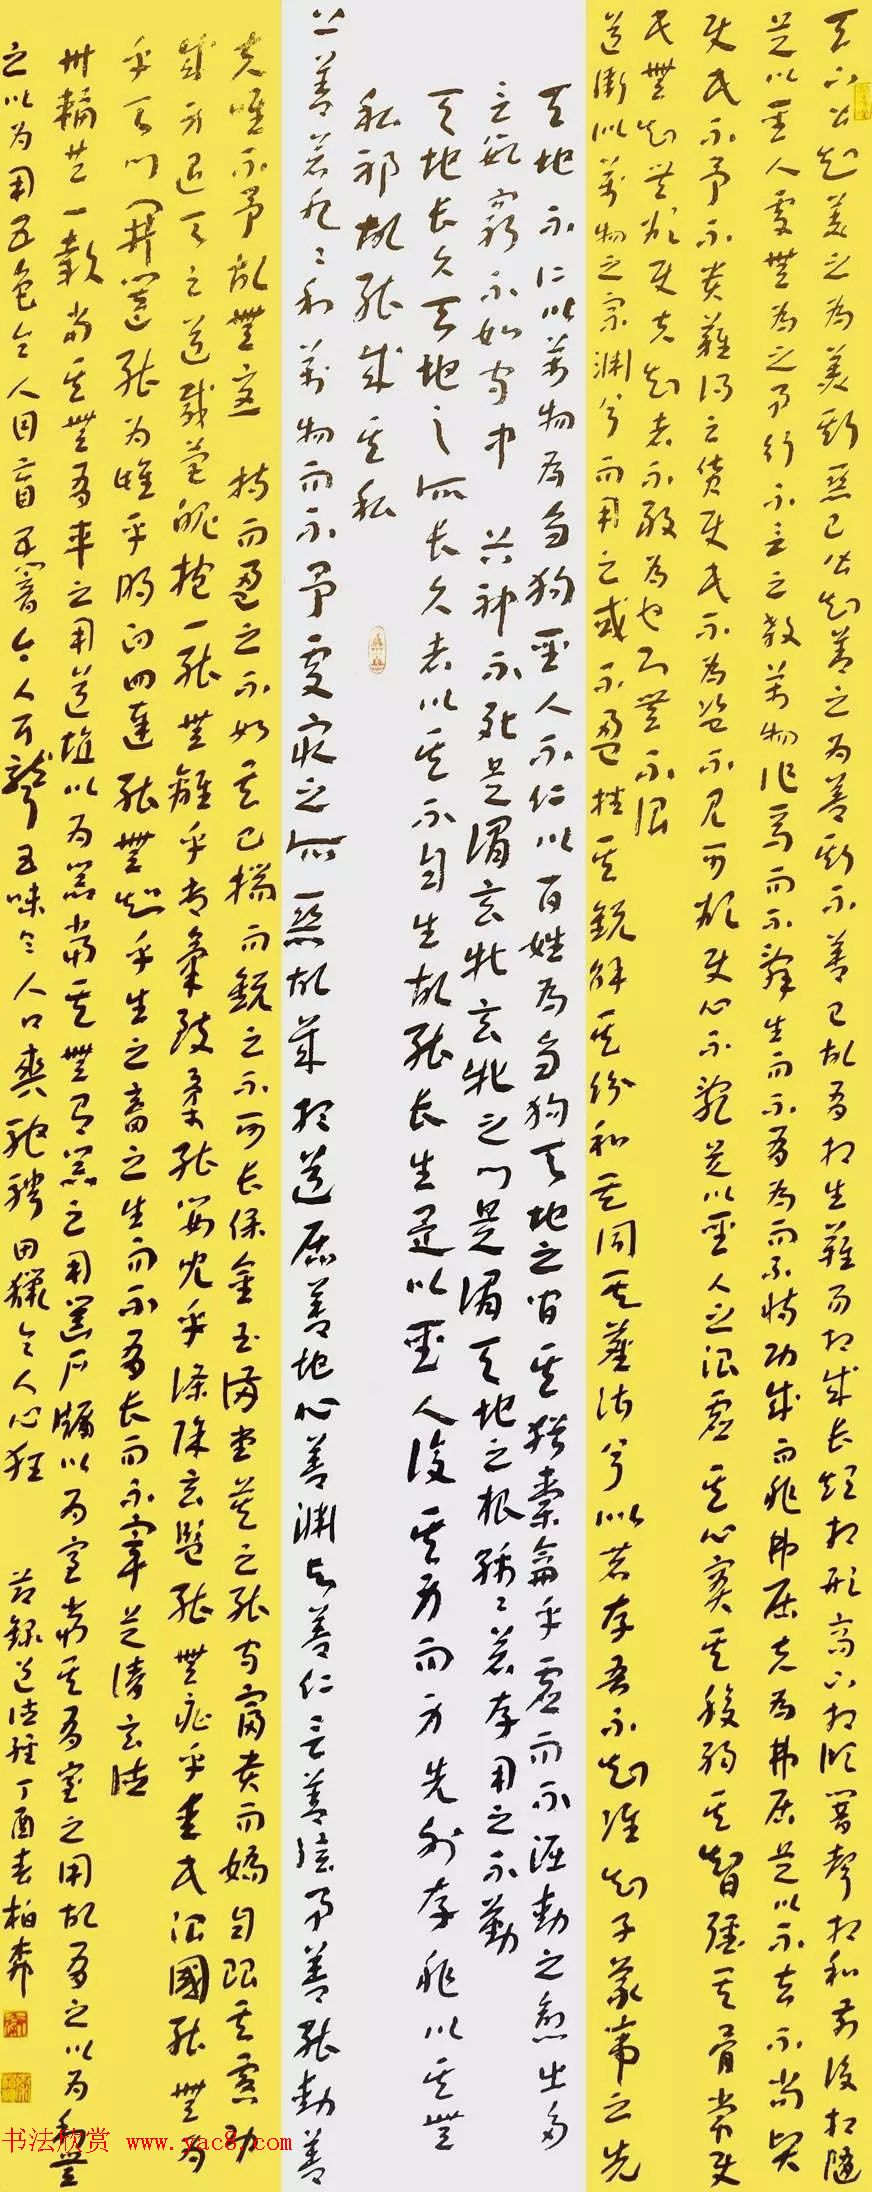 天下皆知美之为美斯恶已皆知善之为善斯不善已故有相生难易相成长短相形高下相倾音声相和前后相随
是以圣人处无为之事行不言之教万物作焉而不辞生而不有为而不恃功成而非弗居夫为弗居是以不去不尚贤
使民不争不贵难得之货使民不为盗不见可欲使心不乱是以圣人之治虚其心实其腹弱其智强其骨常使
民无知无欲使夫知者不敢为也而无不治
道冲似万物之宗渊兮而用之或不盈挫其锐解其纷和其同其尘湛兮似若存吾不知谁知子象帝之先
天地不仁以万物为刍狗圣人不仁以百姓为刍狗天地之间其犹橐籥乎虚而不淈动之愈出多
言数穷不如守中 谷神不死是谓玄牝玄牝之门是谓天地之根绵绵若存用之不勤
天地长久天地之所长久者以其不自生故能长生是以圣人后其身而身先外存非以其无
私邪故能成其私
上善若水水利万物而不争处众之所恶故几于道居善地心善渊与善仁言善信事善能动善
夫唯不争故无尤 持而盈之不如其已揣而锐之不可长保金玉满堂莫之能守富贵而骄自遗其咎功
成身退天之道载营魄抱一能无离乎专气致柔能婴儿乎涤除玄览能无疵乎爱民治国能无为
乎天门开阖能为雌乎明白四达能无知乎生之畜之生而不有长而不宰是谓玄德
卅辐共一毂当其无有车之用埏埴以为器当其无有器之用凿户牖以为室当其有室之用故有之以为利无
之以为用五色令人目盲五音令人耳聋五味令人口爽驰骋田猎令人心狂 节录道德经丁酉春柏森
书法欣赏 www.yac8.com